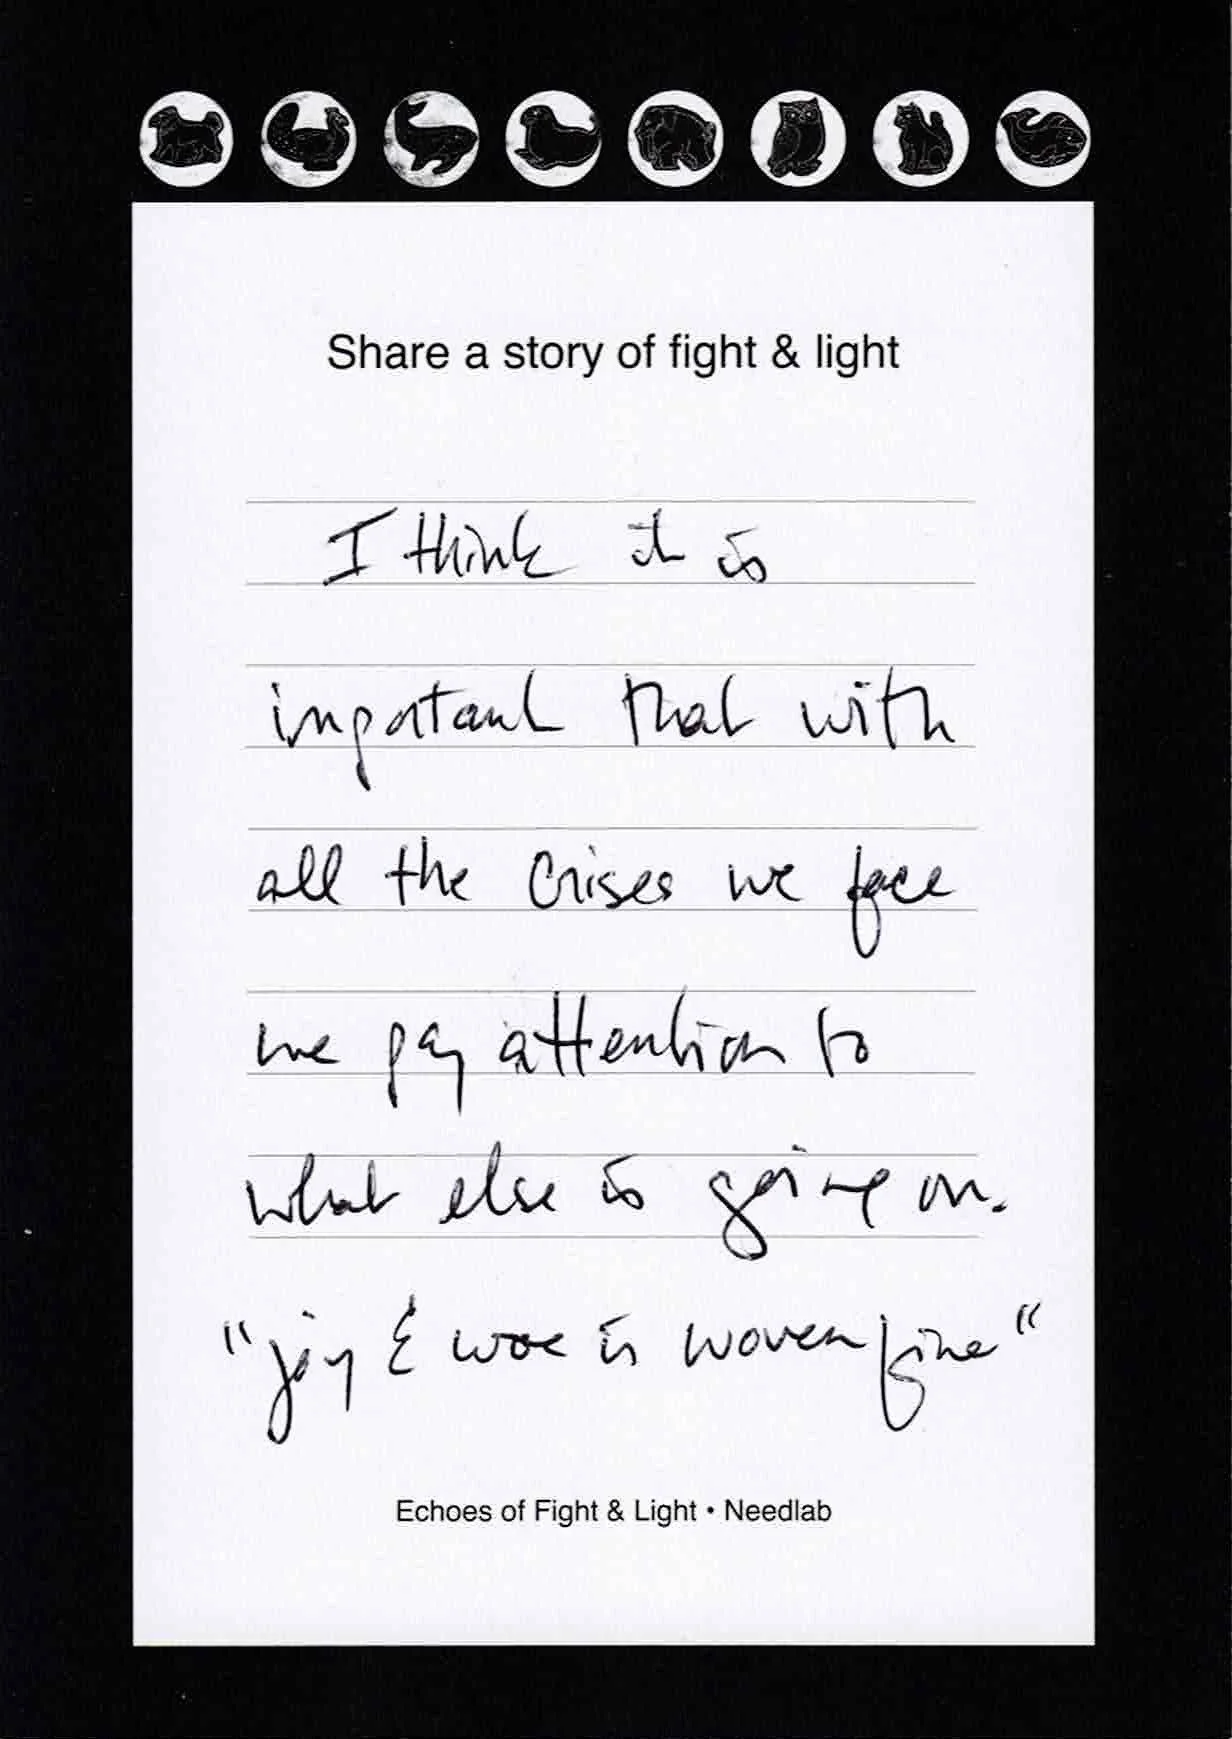 Share a story of fight & light
I think it is
important that with
all the crises we face
we pay attention to
what else is going on.
"joy & woe is woven fine"
Echoes of Fight & Light • Needlab